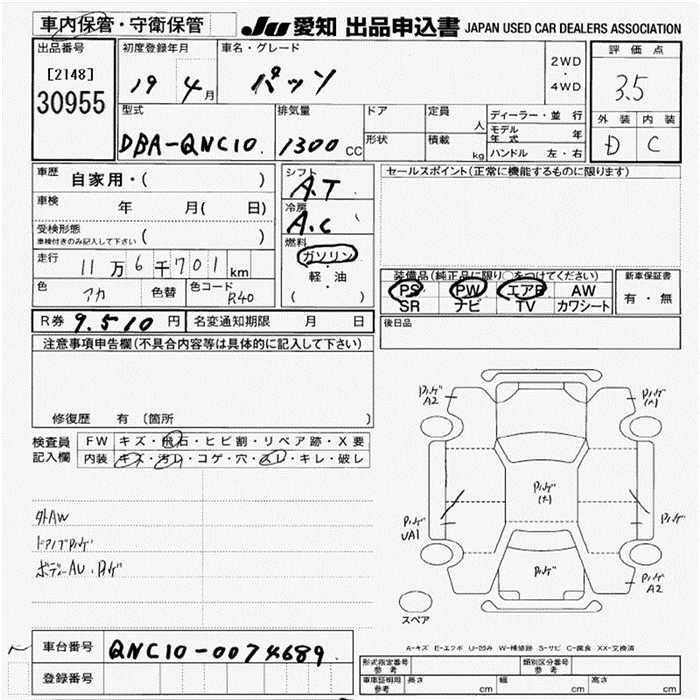 車内保管・守衛保管
JU 愛知 出品申込書 JAPAN USED CAR DEALERS ASSOCIATION
出品番号
[2148]
30955
初度登録年月
19 4月
車名・グレード
パッソ
2WD
・
4WD
評価点
3.5
外装 内装
D C
型式
DBA-QNC10
排気量
1300 CC
ドア
形状
定員
人
積載
kg
ディーラー・並行
モデル年式 年
ハンドル 左・右
車歴
自家用・( )
車検
年 月( 日)
受検形態
車検付きのみ記入して下さい ( )
走行
11万6千701km
色
アカ
色替
色コード
R40
シフト
A.T
冷房
A.C
燃料
ガソリン
軽・油
( )
セールスポイント(正常に機能するものに限ります)
装備品(純正品に限り○をつけてください)
PS PW エアB AW
SR ナビ TV カワシート
新車保証書
有・無
R券 9.510円
名変通知期限 月 日
後日品
注意事項申告欄(不具合内容等は具体的に記入して下さい)
修復歴 有 〔箇所 〕
検査員
記入欄
FW キズ・飛石・ヒビ割・リペア跡・X要
内装 キズ・汚れ・コゲ・穴・スレ・キレ・破レ
外AW
ボデーAU・Pハゲ
Pハゲ
A2
Pハゲ
Pハゲ
Pハゲ
UA1
Pハゲ
Pハゲ
Pハゲ
A2
スペア
A-キズ E-エクボ U-凹み W-補修跡 S-サビ C-腐食 XX-交換済
車台番号
QNC10-0074689
登録番号
形式指定番号
参考
類別区分番号
参考
車庫証明用
参考
長さ cm
幅 cm
高さ cm